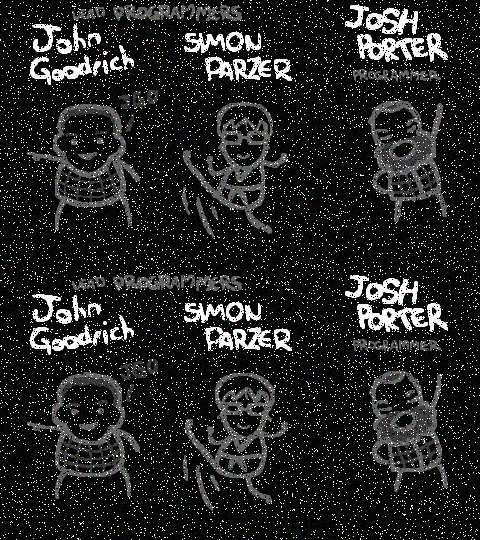 LEAD PROGRAMMERS
John
Goodrich
SIMON
PARZER
JOSH
PORTER
PROGRAMMER
LEAD PROGRAMMERS
John
Goodrich
SIMON
PARZER
JOSH
PORTER
PROGRAMMER